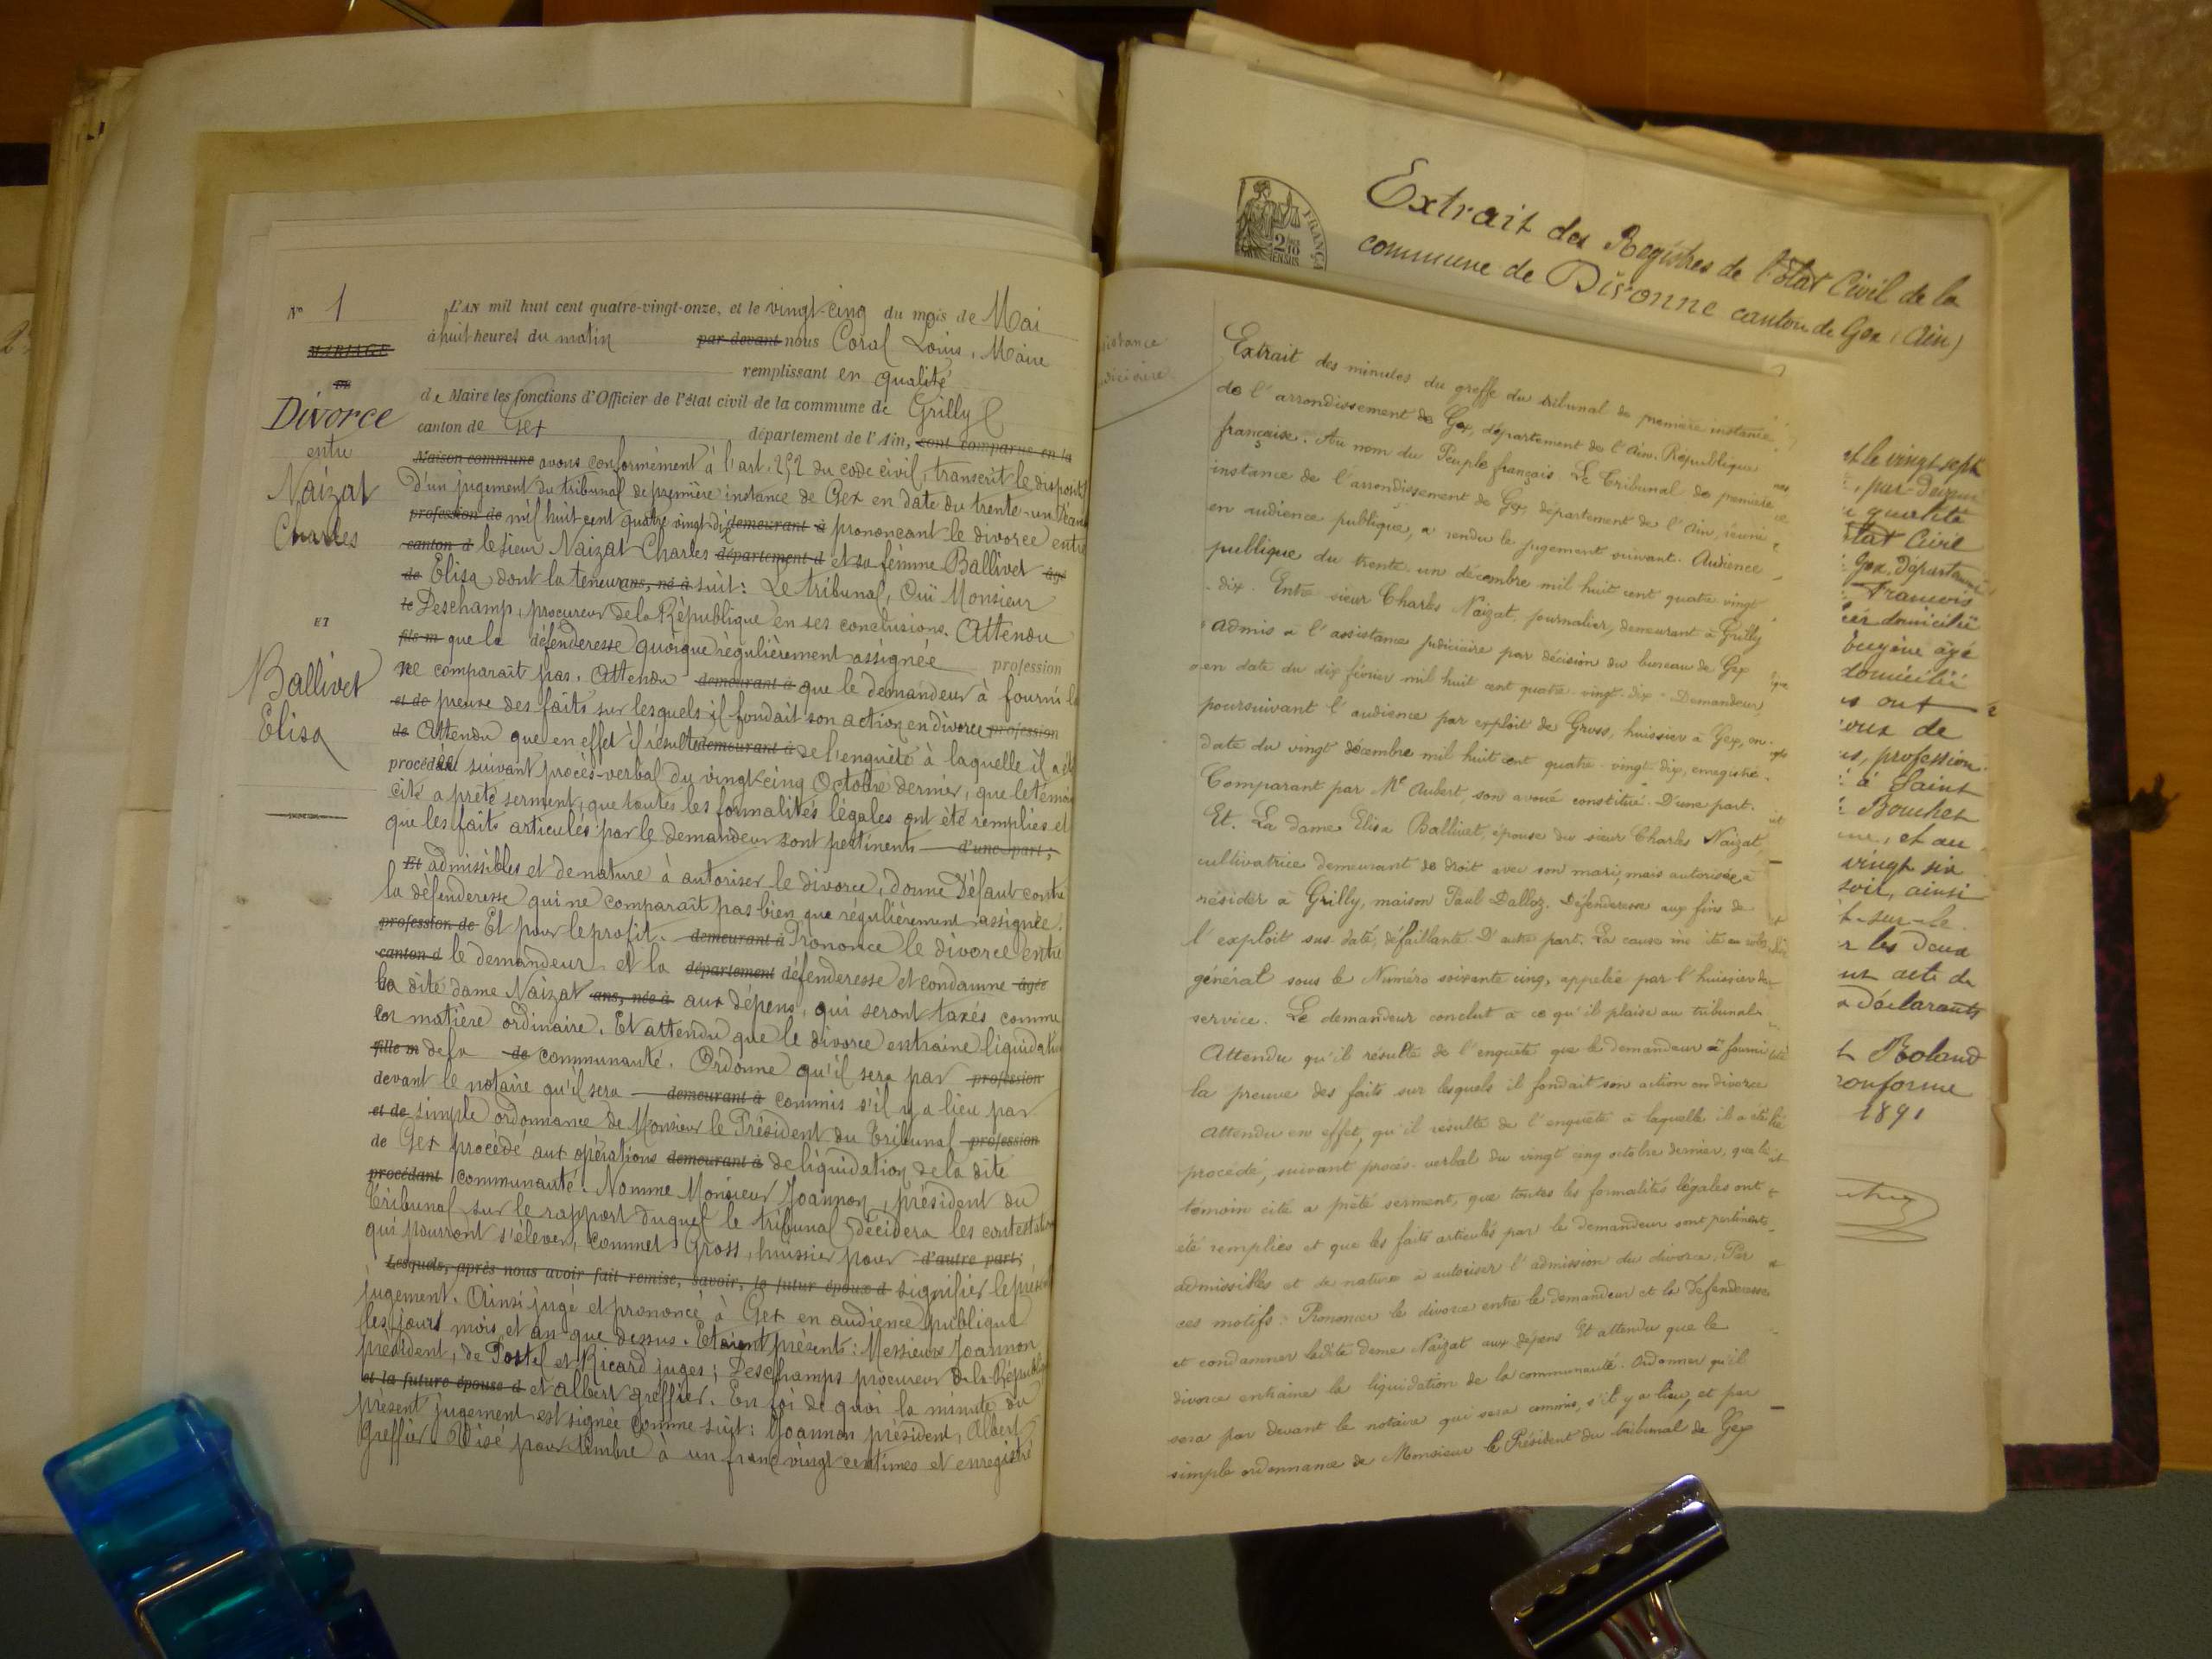 N° 1
MARIAGE
Divorce
entre
Naizat
Charles
ET
Ballivet
Elisa
L'AN mil huit cent quatre-vingt-onze, et le vingt-cinq du mois de Mai
à huit heures du matin par devant nous Coral Louis, Maire
remplissant en qualité
de Maire les fonctions d'Officier de l'état civil de la commune de Grilly
canton de Gex département de l'Ain, sont comparus en la
Maison commune avons conformément à l'art. 252 du code civil, transcrit le dispositif
d'un jugement du tribunal de première instance de Gex en date du trente-un
profession de mil huit cent quatre vingt-dix demeurant à prononcant le divorce entre
canton d le sieur Naizat Charles département d et sa femme Ballivet âgé
de Elisa dont la teneur ans, né à suit: Le tribunal, Oui Monsieur
le Deschamp, procureur de la République en ses conclusions. Attendu
fils m que la défenderesse quoique régulièrement assignée profession
ne comparaît pas. Attendu demeurant à que le demandeur à fourni la
et de preuve des faits sur lesquels il fondait son action en divorce profession
de Attendu que en effet il résulte demeurant à de l'enquête à laquelle il a été
procédé suivant procès-verbal du vingt-cinq Octobre dernier, que le témoin
cité a prêté serment, que toutes les formalités légales ont été remplies et
que les faits articulés par le demandeur sont pertinents d'une part;
Et admissibles et de nature à autoriser le divorce, donne Défaut contre
la défenderesse qui ne comparaît pas bien que régulièrement assignée.
profession de Et pour le profit. demeurant à Prononce le divorce entre
canton d le demandeur et la département défenderesse et condamne âgée
la dite dame Naizat ans, née à aux dépens, qui seront taxés comme
en matière ordinaire. Et attendu que le divorce entraine liquidation
fille m de la de communauté. Ordonne qu'il sera par profession
devant le notaire qu'il sera demeurant à commis s'il y a lieu par
et de simple ordonnance de Monsieur le Président du Tribunal profession
de Gex procédé aux opérations demeurant à de liquidation de la dite
procédant communauté. Nomme Monsieur Joannon, président du
Tribunal sur le rapport duquel le tribunal décidera les contestations
qui pourront s'élever, commet Gross, huissier pour d'autre part;
Lesquels, après nous avoir fait remise, savoir, le futur époux d signifier le présent
jugement. Ainsi jugé et prononcé à Gex en audience publique
les jours mois et an que dessus. Etaient présents: Messieurs Joannon
président, de Postel et Ricard juges; Deschamps procureur de la République
et la future épouse d et Albert greffier. En foi de quoi la minute du
présent jugement est signée comme suit: Joannon président, Albert
Greffier. Visé pour timbre à un franc vingt centimes et enregistré
Extrait des Registres de l'état Civil de la
commune de Divonne canton de Gex (Ain)
Extrait des minutes du greffe du tribunal de première instance
de l'arrondissement de Gex, département de l'Ain. République
française. Au nom du Peuple français. Le Tribunal de première
instance de l'arrondissement de Gex, département de l'Ain, réuni
en audience publique, a rendu le jugement suivant. Audience
publique du trente un décembre mil huit cent quatre vingt
dix. Entre sieur Charles Naizat, journalier, demeurant à Grilly
admis à l'assistance judiciaire par décision du bureau de Gex
en date du dix février mil huit cent quatre-vingt-dix. Demandeur,
poursuivant l'audience par exploit de Gross, huissier à Gex, en
date du vingt décembre mil huit cent quatre-vingt dix, enregistré.
Comparant par Me Aubert, son avoué constitué. D'une part.
Et. La dame Elisa Ballivet, épouse du sieur Charles Naizat,
cultivatrice demeurant de droit avec son mari, mais autorisée à
résider à Grilly, maison Paul Dalloz. Défenderesse aux fins de
l'exploit sus daté, défaillante. D'autre part. La cause
général sous le Numéro soixante cinq, appelée par l'huissier de
service. Le demandeur conclut à ce qu'il plaise au tribunal
Attendu qu'il résulte de l'enquête que le demandeur a fourni
la preuve des faits sur lesquels il fondait son action en divorce
Attendu en effet, qu'il résulte de l'enquête à laquelle il a été
procédé, suivant procès-verbal du vingt cinq octobre dernier, que le
témoin cité a prêté serment, que toutes les formalités légales ont
été remplies et que les faits articulés par le demandeur sont pertinents
admissibles et de nature à autoriser l'admission du divorce. Par
ces motifs: Prononcer le divorce entre le demandeur et la défenderesse
et condamner ladite dame Naizat aux dépens. Et attendu que le
divorce entraine la liquidation de la communauté. Ordonner qu'il
sera par devant le notaire qui sera commis, s'il y a lieu, et par
simple ordonnance de Monsieur le Président du tribunal de Gex
et le vingt sept
par-devant
qualité
état Civil
Gex, département
François
domicilié
Eugène âgé
domicilié
ont
de
profession
à Saint
Bouchet
et au
vingt six
soir, ainsi
sur-le
les deux
acte de
déclarants
Roland
conforme
1891